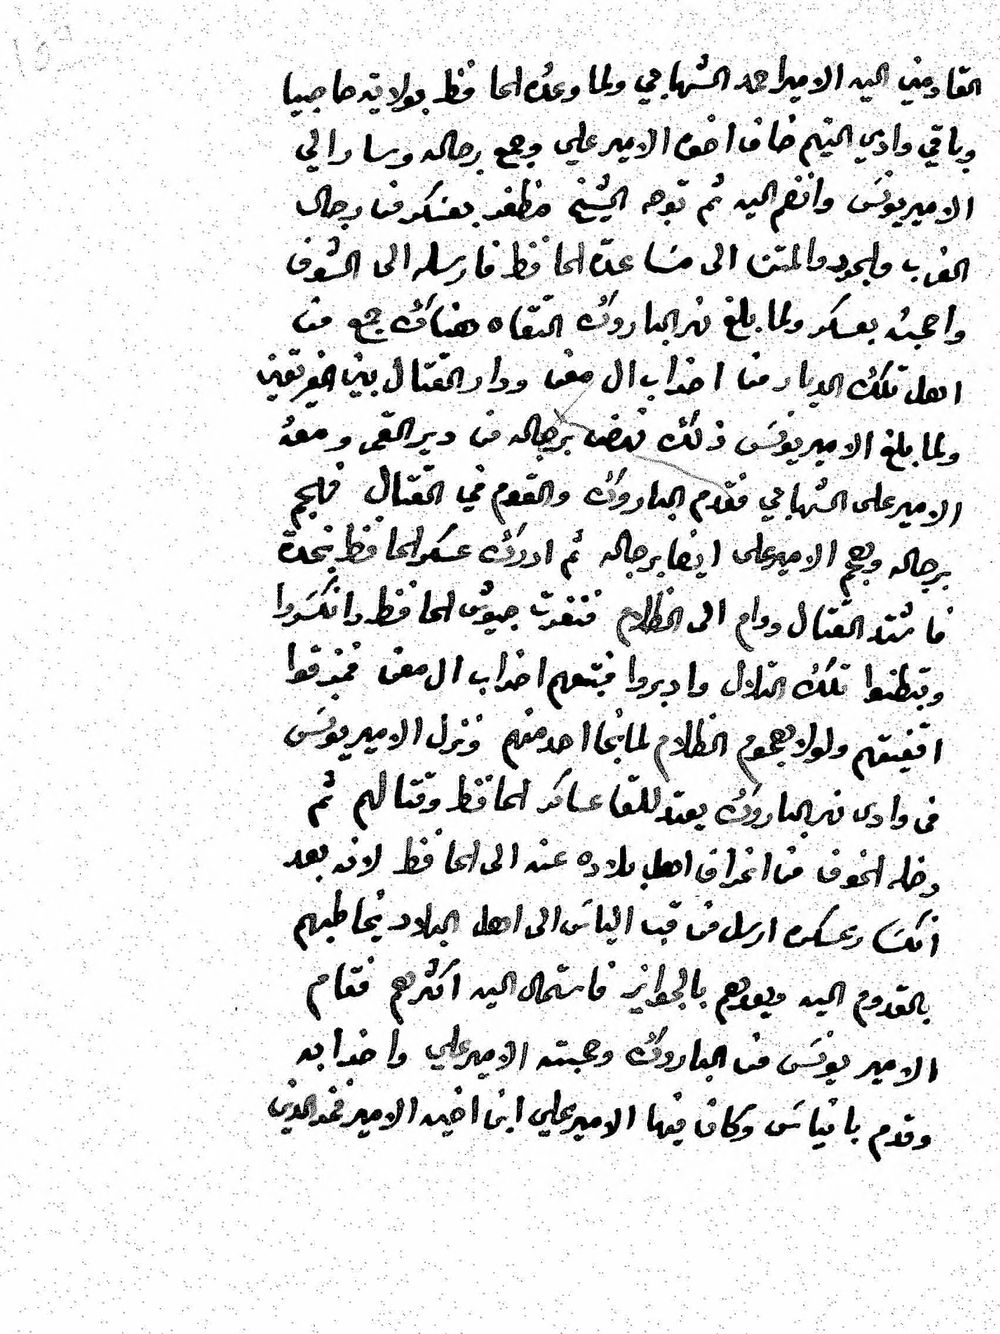 القادمين اليه الامير احمد الشهابي ولما وعده الحافظ بولاية حاصبيا
وباقي وادي التيم خاف اخوه الامير علي وجمع رجاله وسار الي
الامير يونس وانضم اليه ثم توجه الشيخ مظفر بعسكر من رجال
الغرب والجرد والمتن الى مساعدة الحافظ فارسله الى الشوف
واصحبه بعسكر ولما بلغ نهر الباروك التقاه هناك جمع من
اهل تلك الديار من احزاب ال معن ودار القتال بين الفريقين
ولما بلغ الامير يونس ذلك نهض برجاله من دير القمر ومعه
الامير على الشهابي فقدم الباروك والقوم في القتال فهجم
برجاله وهجم الامير على ايضا برجاله ثم ادرك عسكر الحافظ نجدة
فاشتد القتال ودام الى الظلام فتفرقت جيوش الحافظ وانكسروا
وتبطنوا تلك التلال وادبروا فتبعهم احزاب ال معن فمزقوا
اقفيتهم ولولا هجوم الظلام لما نجا احد منهم ونزل الامير يونس
في وادى نهر الباروك يعتد للقا عساكر الحافظ وقتالهم ثم
دخله الخوف من انحراف اهل بلاده عنه الى الحافظ لانه بعد
انكسار عسكره ارسل من قب الياس الى اهل البلاد يخاطبهم
بالقدوم اليه ويعدهم بالجوايز فاستمال اليه اكثرهم فقام
الامير يونس من الباروك وصحبته الامير علي واحزابه
وقدم بانياس وكان فيها الامير علي ابن اخيه الامير فخر الدين